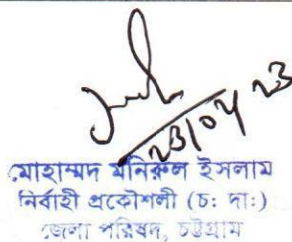 ২৩/০৭/২৩
মোহাম্মদ মনিরুল ইসলাম
নির্বাহী প্রকৌশলী (চ: দা:)
জেলা পরিষদ, চট্টগ্রাম